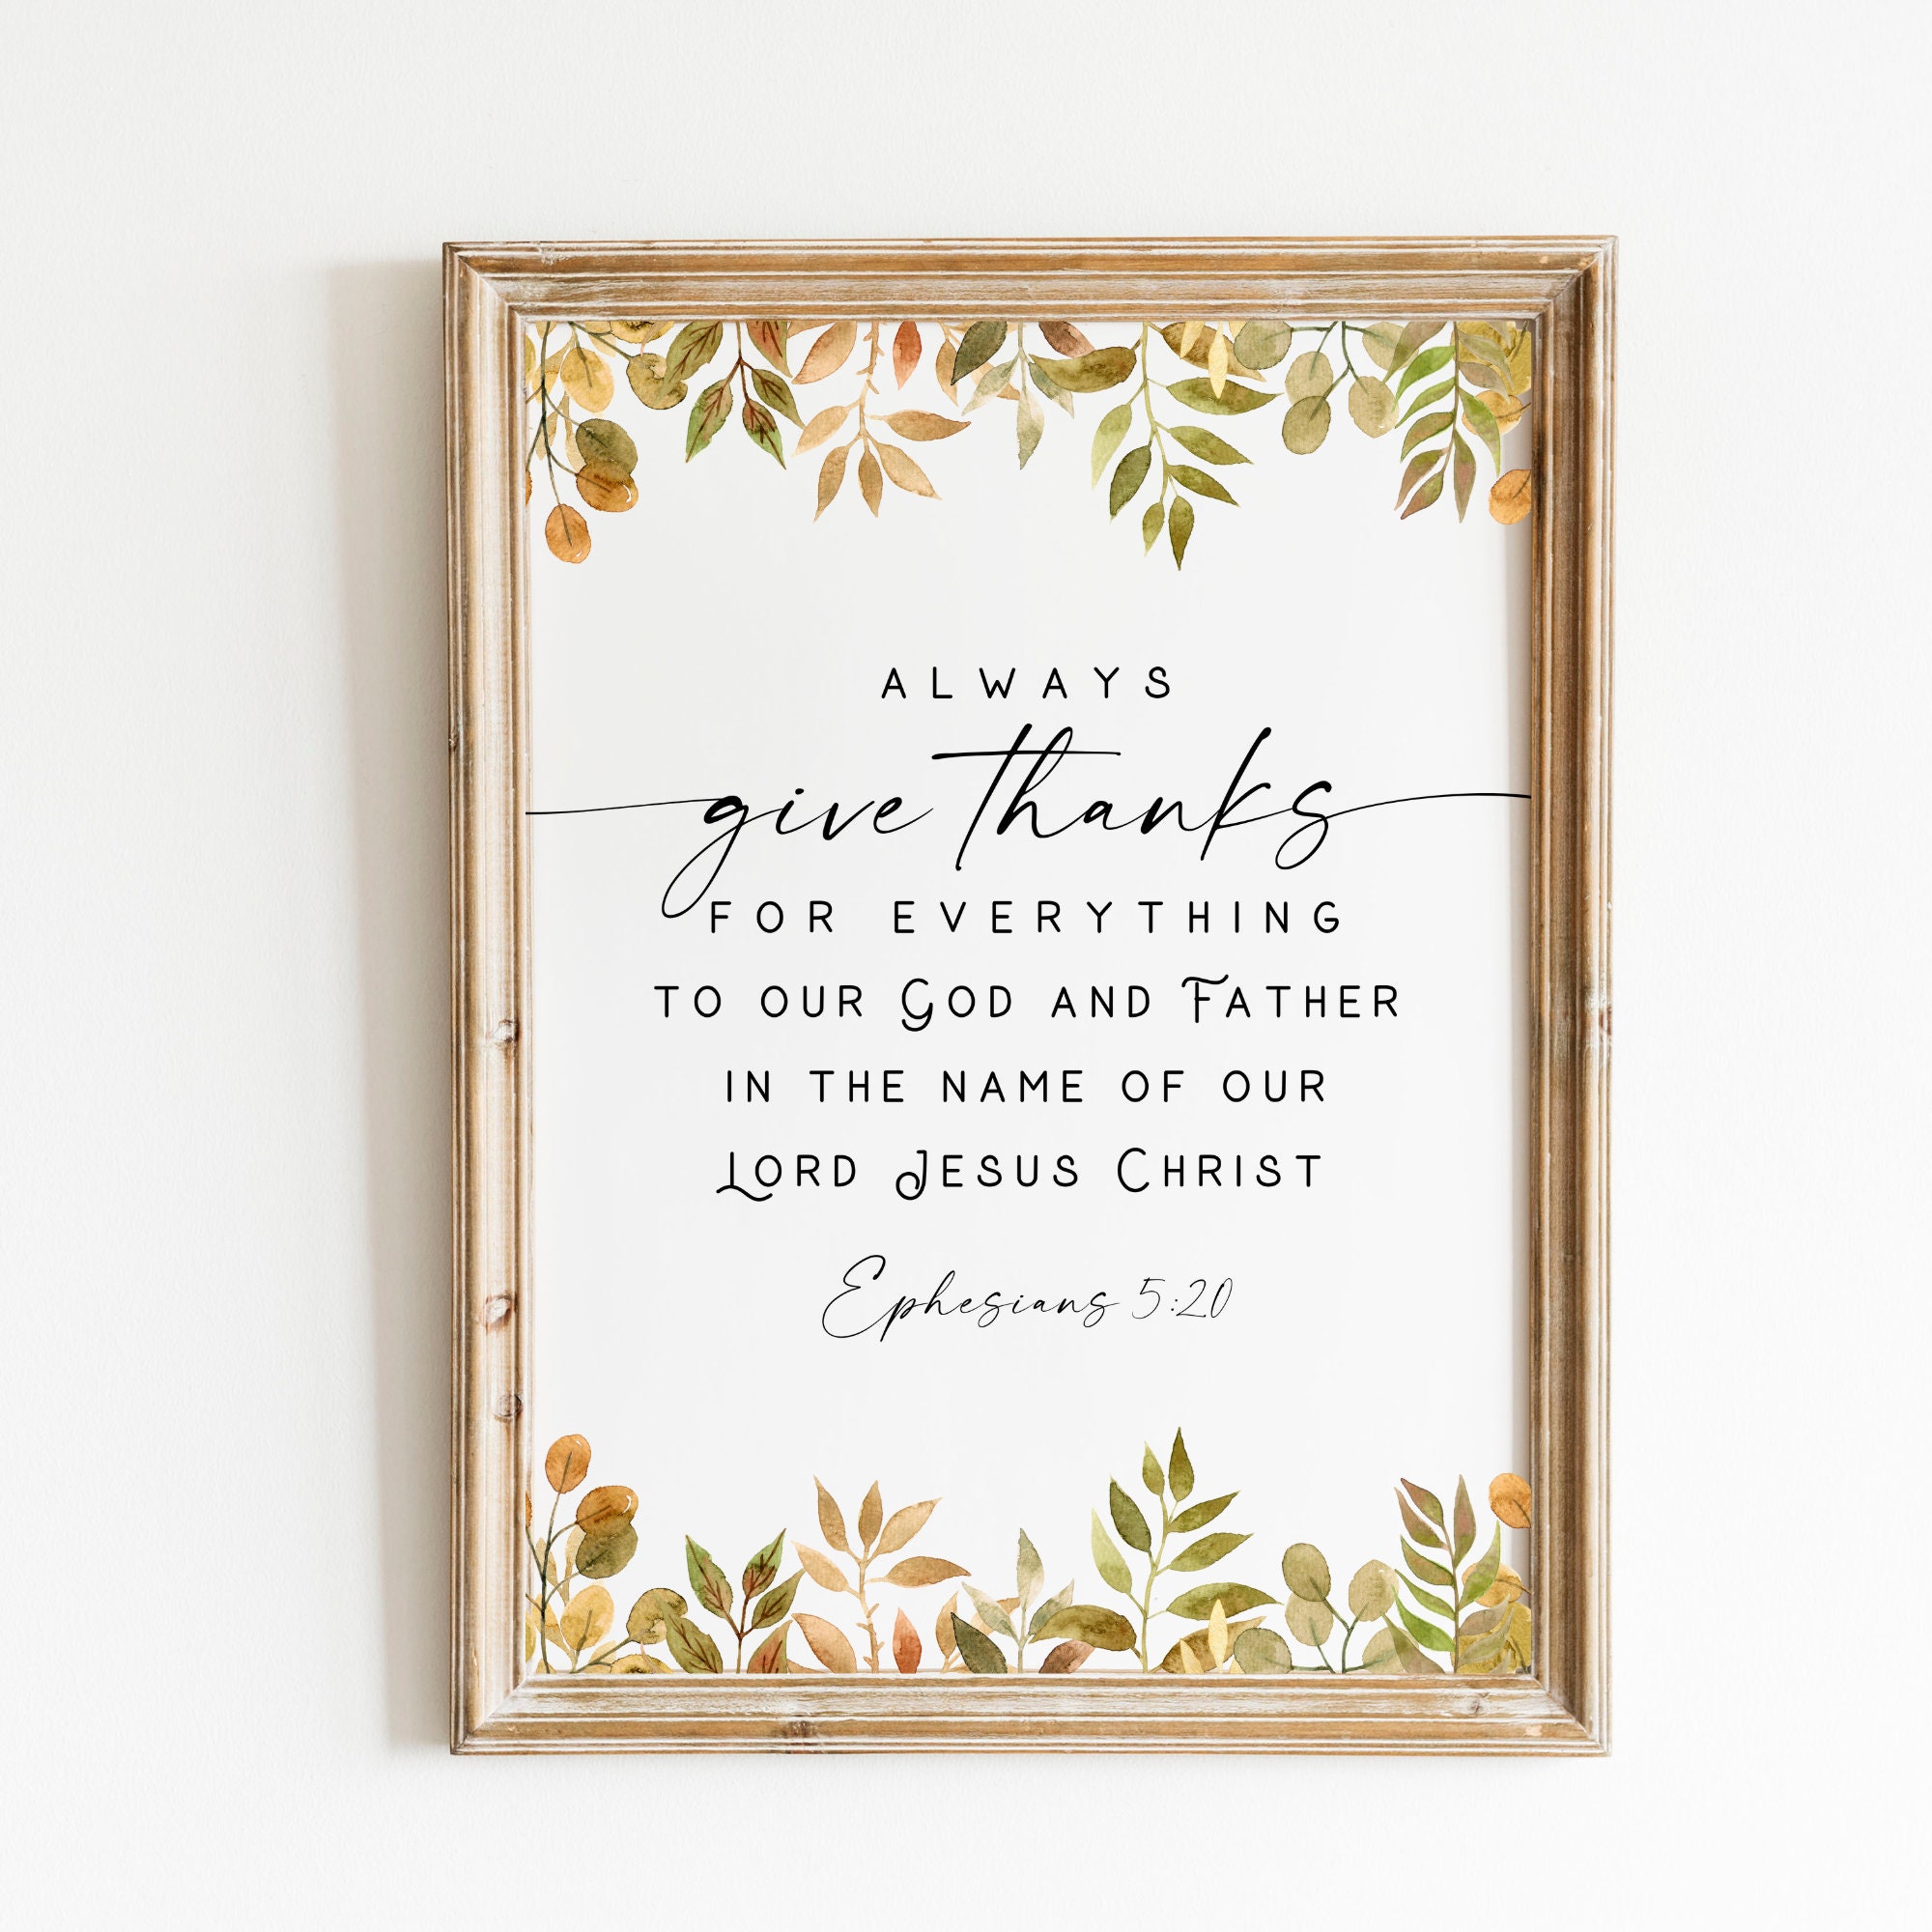 ALWAYS
give thanks
FOR EVERYTHING
TO OUR GOD AND FATHER
IN THE NAME OF OUR
LORD JESUS CHRIST
Ephesians 5:20